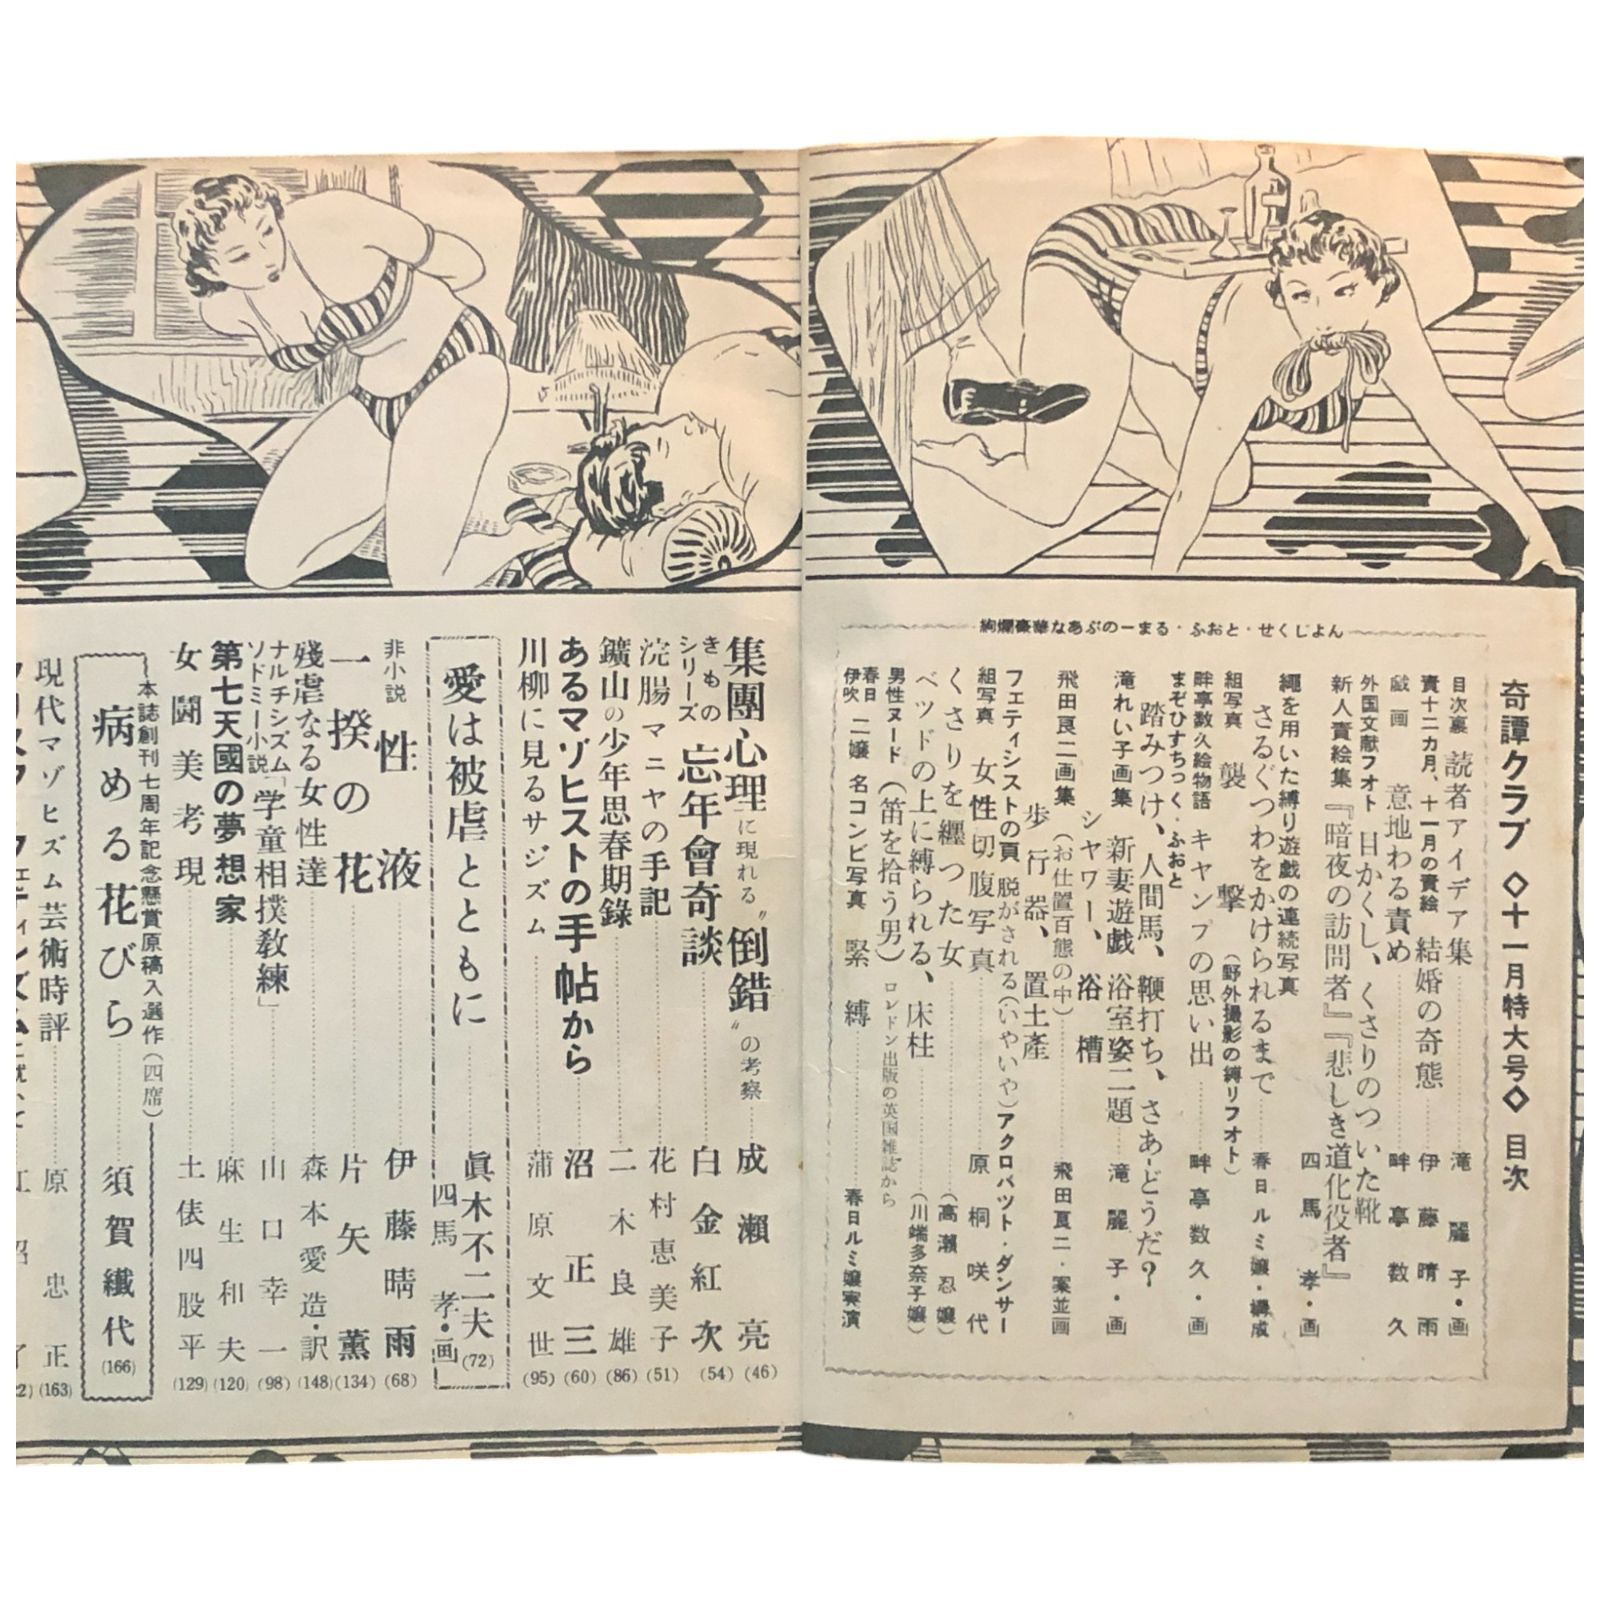 奇譚クラブ ◇十一月特大号◇ 目次
絢爛豪華なあぶのーまる・ふおと・せくじよん
目次裏 読者アイデア集 滝麗子・画
責十二カ月、十一月の責絵 結婚の奇態 伊藤晴雨
戯画 意地わる責め 畔亭数久
外国文献フオト 目かくし、くさりのついた靴
新人責絵集 『暗夜の訪問者』『悲しき道化役者』 四馬孝・画
縄を用いた縛り遊戯の連続写真
さるぐつわをかけられるまで 春日ルミ嬢・構成
組写真 襲撃 (野外撮影の縛りフオト)
畔亭数久絵物語 キヤンプの思い出 畔亭数久・画
まぞひすちつく・ふおと
踏みつけ、人間馬、鞭打ち、さあどうだ?
滝れい子画集 新妻遊戯 浴室姿二題 滝麗子・画
シヤワー、浴槽
飛田良二画集 (お仕置百態の中) 飛田良二・案並画
歩行器、置土産
フェティシストの頁 脱がされる(いやいや) アクロバット・ダンサー
組写真 女性切腹写真 原桐咲代
くさりを纒つた女 (高瀬忍嬢)
ベッドの上に縛られる、床柱 (川端多奈子嬢)
男性ヌード (笛を拾う男) ロンドン出版の英国雑誌から
春日 伊吹 二嬢 名コンビ写真 緊縛 春日ルミ嬢実演
集團心理に現れる〝倒錯〟の考察 成瀬亮 (46)
きもの シリーズ 忘年會奇談 白金紅次 (54)
浣腸マニヤの手記 花村恵美子 (51)
鑛山の少年思春期錄 二木良雄 (86)
あるマゾヒストの手帖から 沼正三 (60)
川柳に見るサジズム 蒲原文世 (95)
愛は被虐とともに 眞木不二夫 四馬孝・画 (72)
非小説 性液 伊藤晴雨 (68)
一揆の花 片矢薫 (134)
残虐なる女性達 森本愛造・訳 (148)
ナルチシズム ソドミー小説 「学童相撲教練」 山口幸一 (98)
第七天國の夢想家 麻生和夫 (120)
女鬪美考現 土俵四股平 (129)
本誌創刊七周年記念懸賞原稿入選作(四席)
病める花びら 須賀纎代 (166)
現代マゾヒズム芸術時評 原忠正 (163)